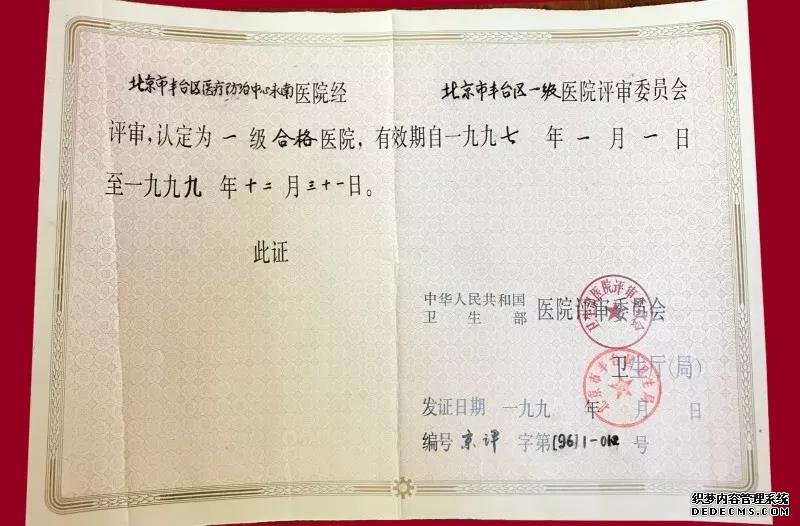 北京市丰台区医疗防治中心永南医院经 北京市丰台区一级医院评审委员会
评审，认定为一级合格医院，有效期自一九九七年一月一日
至一九九九年十二月三十一日。
此证
中华人民共和国
卫生部 医院评审委员会
卫生厅(局)
发证日期 一九九 年 月 日
编号 京评 字第[96]1-012 号
织梦内容管理系统
DEDECMS.COM